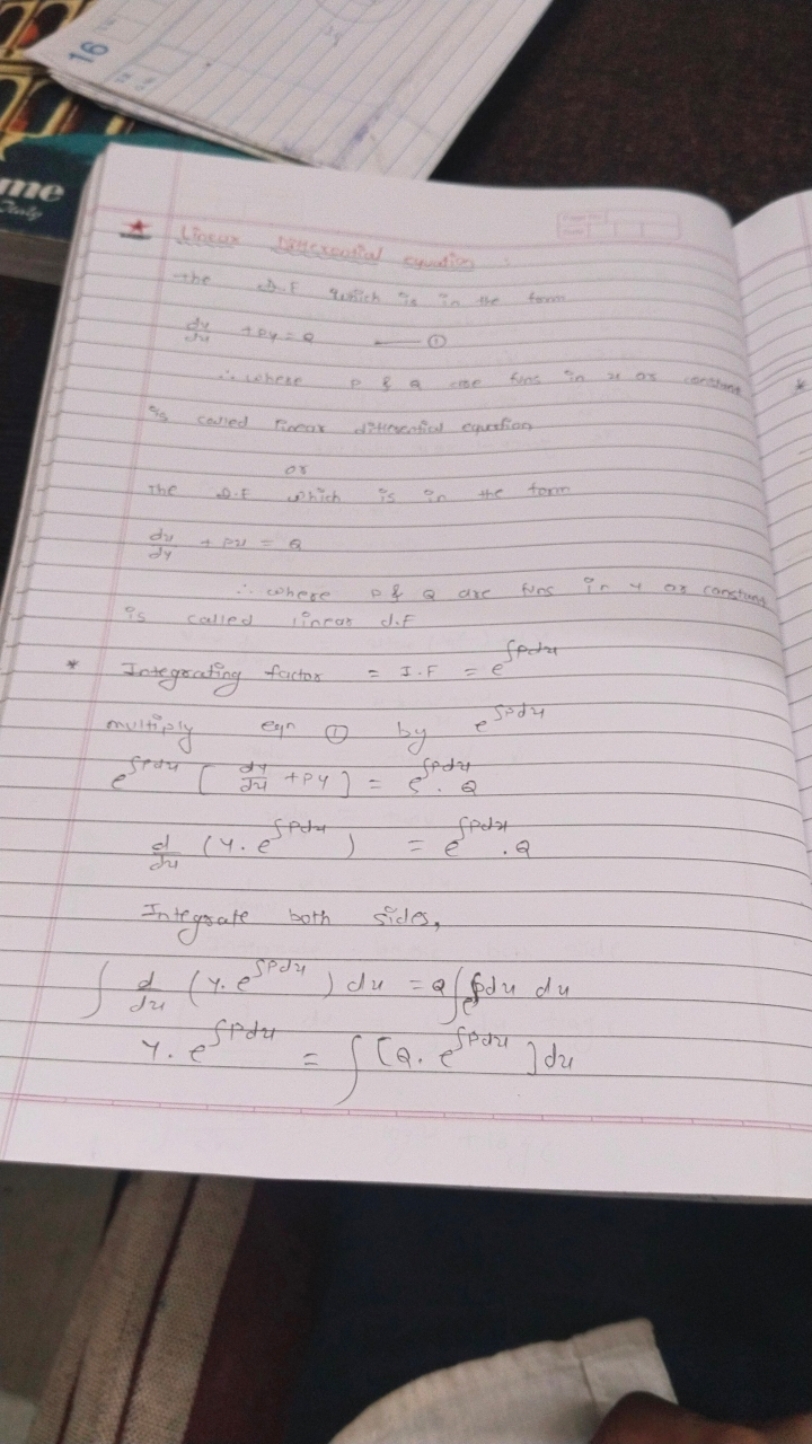 16
me
Italy
Linear Differential equation :
The D.E which is in the form
dy/dx + Py = Q —— ①
∴ where P & Q are funs in x or constant
is called linear differential equation
or
The D.E which is in the form
dx/dy + Px = Q
∴ where P & Q are funs in y or constant
is called linear d.E
* Integrating factor = I.F = e^∫Pdx
multiply eqn ① by e^∫Pdx
e^∫Pdx [ dy/dx + Py ] = e^∫Pdx . Q
d/dx (y. e^∫Pdx ) = e^∫Pdx . Q
Integrate both sides,
∫ d/dx (y. e^∫Pdx ) dx = Q ∫ e^∫Pdx dx
y. e^∫Pdx = ∫ [Q. e^∫Pdx ] dx